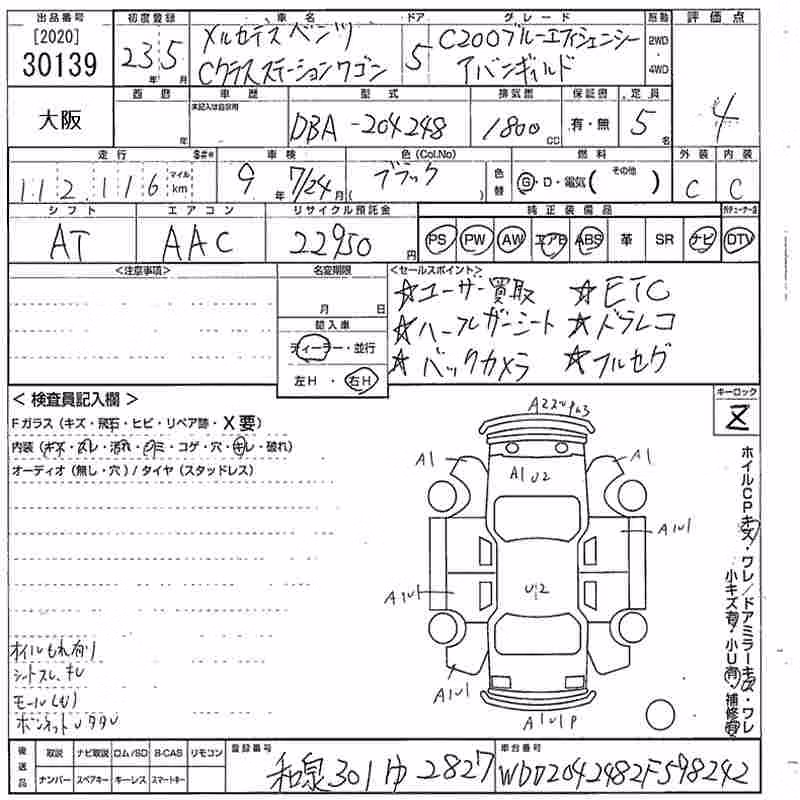 出品番号 初度登録 車名 ドア グレード 駆動 評価点
[2020] 30139
23年5月
メルセデスベンツ
Cクラスステーションワゴン
5
C200ブルーエフィシェンシー
アバンギャルド
2WD・4WD
4
大阪
西暦 車歴 型式 排気量 保証書 定員
年
未記入は自家用
DBA-204248
1800cc
有・無
5名
走行 $#* 車検 色(Col.No) 燃料 外装 内装
112,116 マイル km
9年7/24月
ブラック
( )
色替
Ⓖ・D・電気( その他 )
C C
シフト エアコン リサイクル預託金 純正装備品
AT AAC 22950円
PS PW AW エアB ABS 革 SR ナビ DTV
<注意事項>
名変期限
月 日
輸入車
ディーラー・並行
左H・右H
<セールスポイント>
☆ユーザー買取 ☆ETC
☆ハーフレザーシート ☆ドラレコ
☆バックカメラ ☆フルセグ
キーロック
< 検査員記入欄 >
Fガラス(キズ・飛石・ヒビ・リペア跡・X要)
内装(キズ・スレ・汚れ・シミ・コゲ・穴・キレ・破れ)
オーディオ(無し・穴)/タイヤ(スタッドレス)
A1
A1U2
A1
A1U1
U2
A1U1
A1U1
A1U1
A1U1P
ホイルCPキズ・ワレ/ドアミラーキズ・ワレ
小キズ有・小U有・補修有
オイルもれ有り
シートスレ、キレ
後送品
取説 ナビ取説 ロム/SD B-CAS リモコン
ナンバー スペアキー キーレス スマートキー
登録番号
和泉301ゆ2827
車台番号
WDD2042482F598242